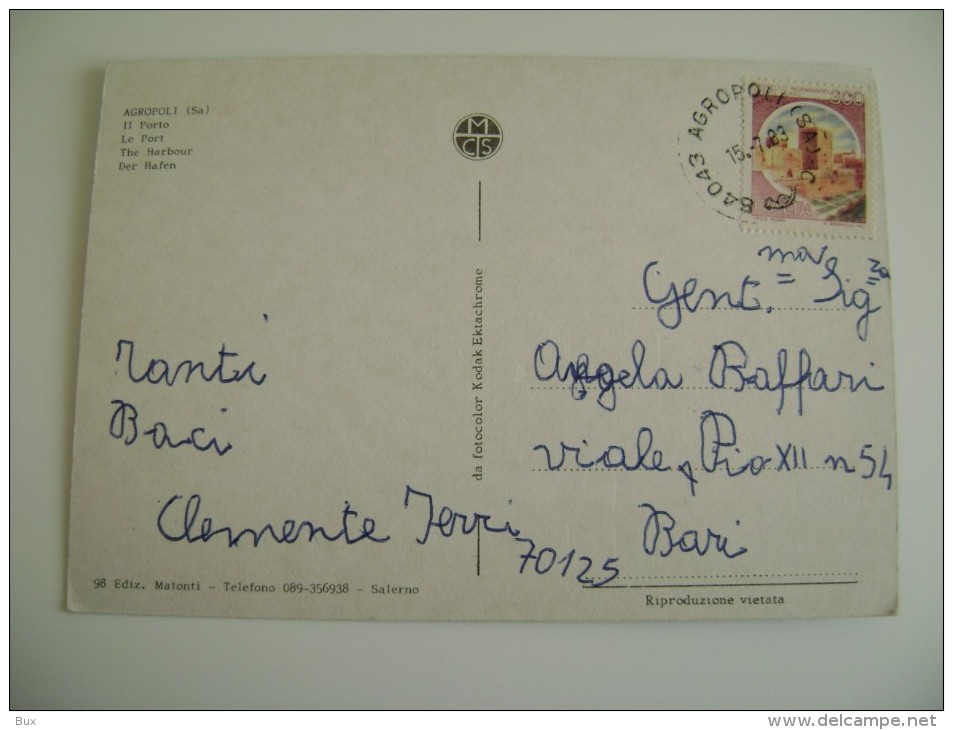 AGROPOLI (Sa)
Il Porto
Le Port
The Harbour
Der Hafen
M
CS
84043 AGROPOLI (SA)
15.-7.83
300
Gent.ma Sig.za
Angela Baffari
viale Pio XII n 54
70125 Bari
Tanti
Baci
Clemente Terri
da fotocolor Kodak Ektachrome
98 Ediz. Matonti - Telefono 089-356938 - Salerno
Riproduzione vietata
Bux
http://www.delcampe.net